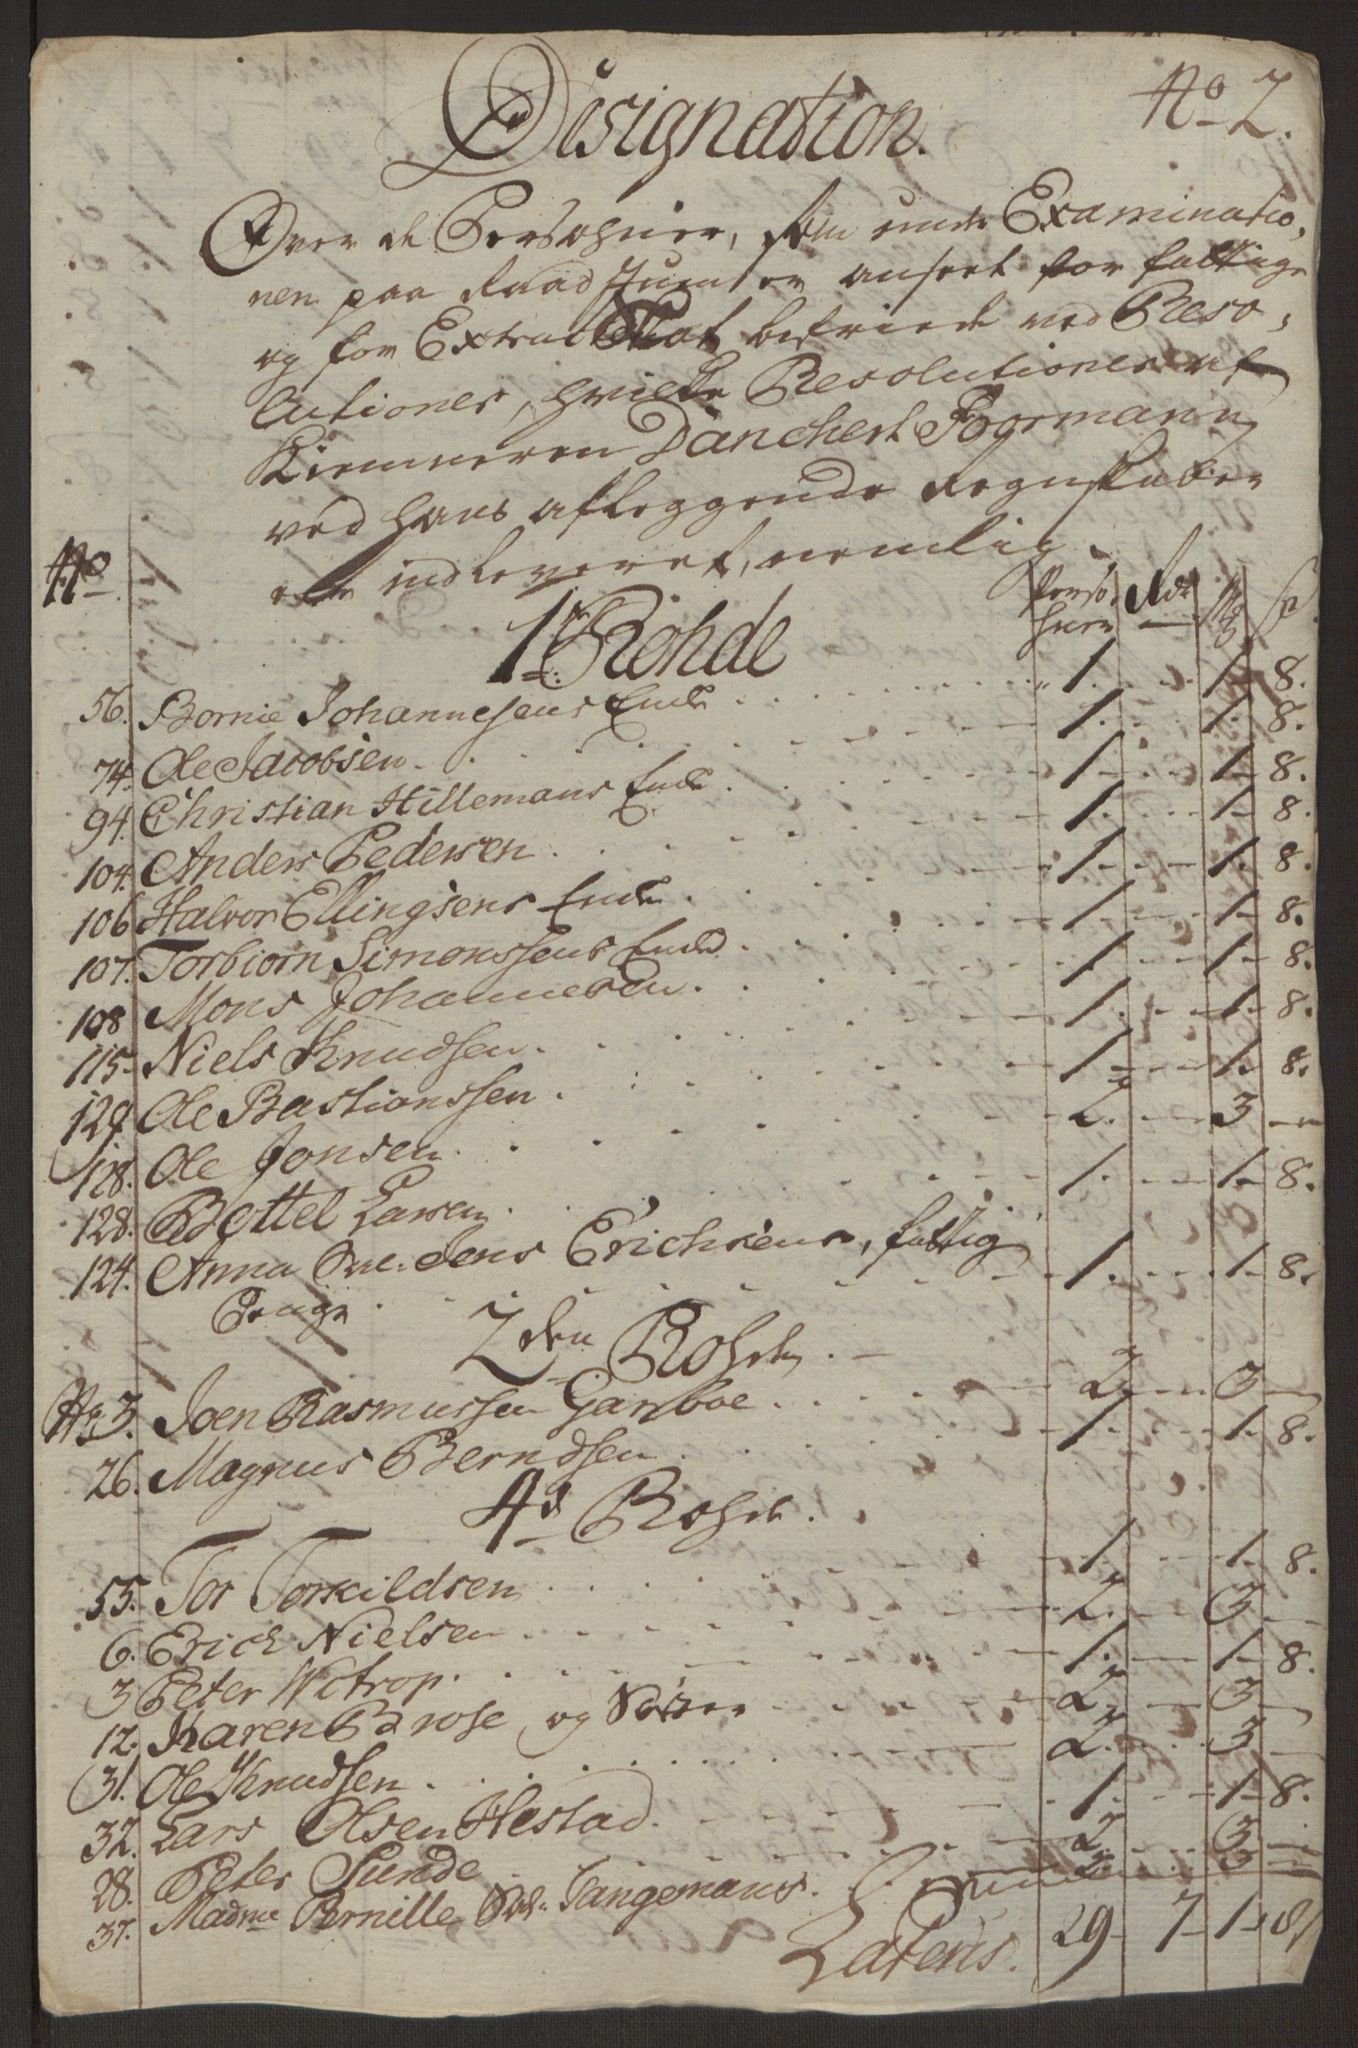 No 2.
Designation.
Over de Persohner, som under Examinatio,
nen paa Raadstuen er anseet for fattige
og for Extra Skat befriede ved Reso,
lutioner, hvilke Resolutioner af
Kiemneren Danchert Foormann
ved hans afleggende Regnskaber
er indleveret, nemlig.
No Persohner Rdr Mk S
1te Rohde
56. Bornie Johannesens Enke 1. 1. 8.
74. Ole Jacobsen 1. 1. 8.
94. Christian Hillemans Enke 1. 1. 8.
104. Anders Pedersen 1. 1. 8.
106 Halvor Ellingsens Enke 1. 1. 8.
107. Torbiorn Simonssens Enke 1. 1. 8.
108 Mons Johannesen 1. 1. 8.
115 Niels Knudsen 1. 1. 8.
127 Ole Bastianssen 1. 1. 8.
128. Ole Jonsen 2. 3
128. Bottel Larsen 1. 1. 8.
124. Anna Sal. Jens Erichsens, fattig
Penge 1. 1. 8.
2den Rohde
No 3. Joen Rasmussen Garboe 2. 3
26. Magnus Berndsen 1. 1. 8.
4de Rohde.
55. Tor Torkildsen 1. 1. 8.
6. Erich Nielsen 2. 3
3 Peter Wotrop. 1. 1. 8.
12. Karen Barose og Søster 2. 3
31. Ole Knudsen 2. 3
32. Lars Olsen Hestad. 1. 1. 8.
28. Peter Sunde 2. 3
37. Madme Pernille Sal. Tangemans. 2 3
Latens. 29 7 1 8